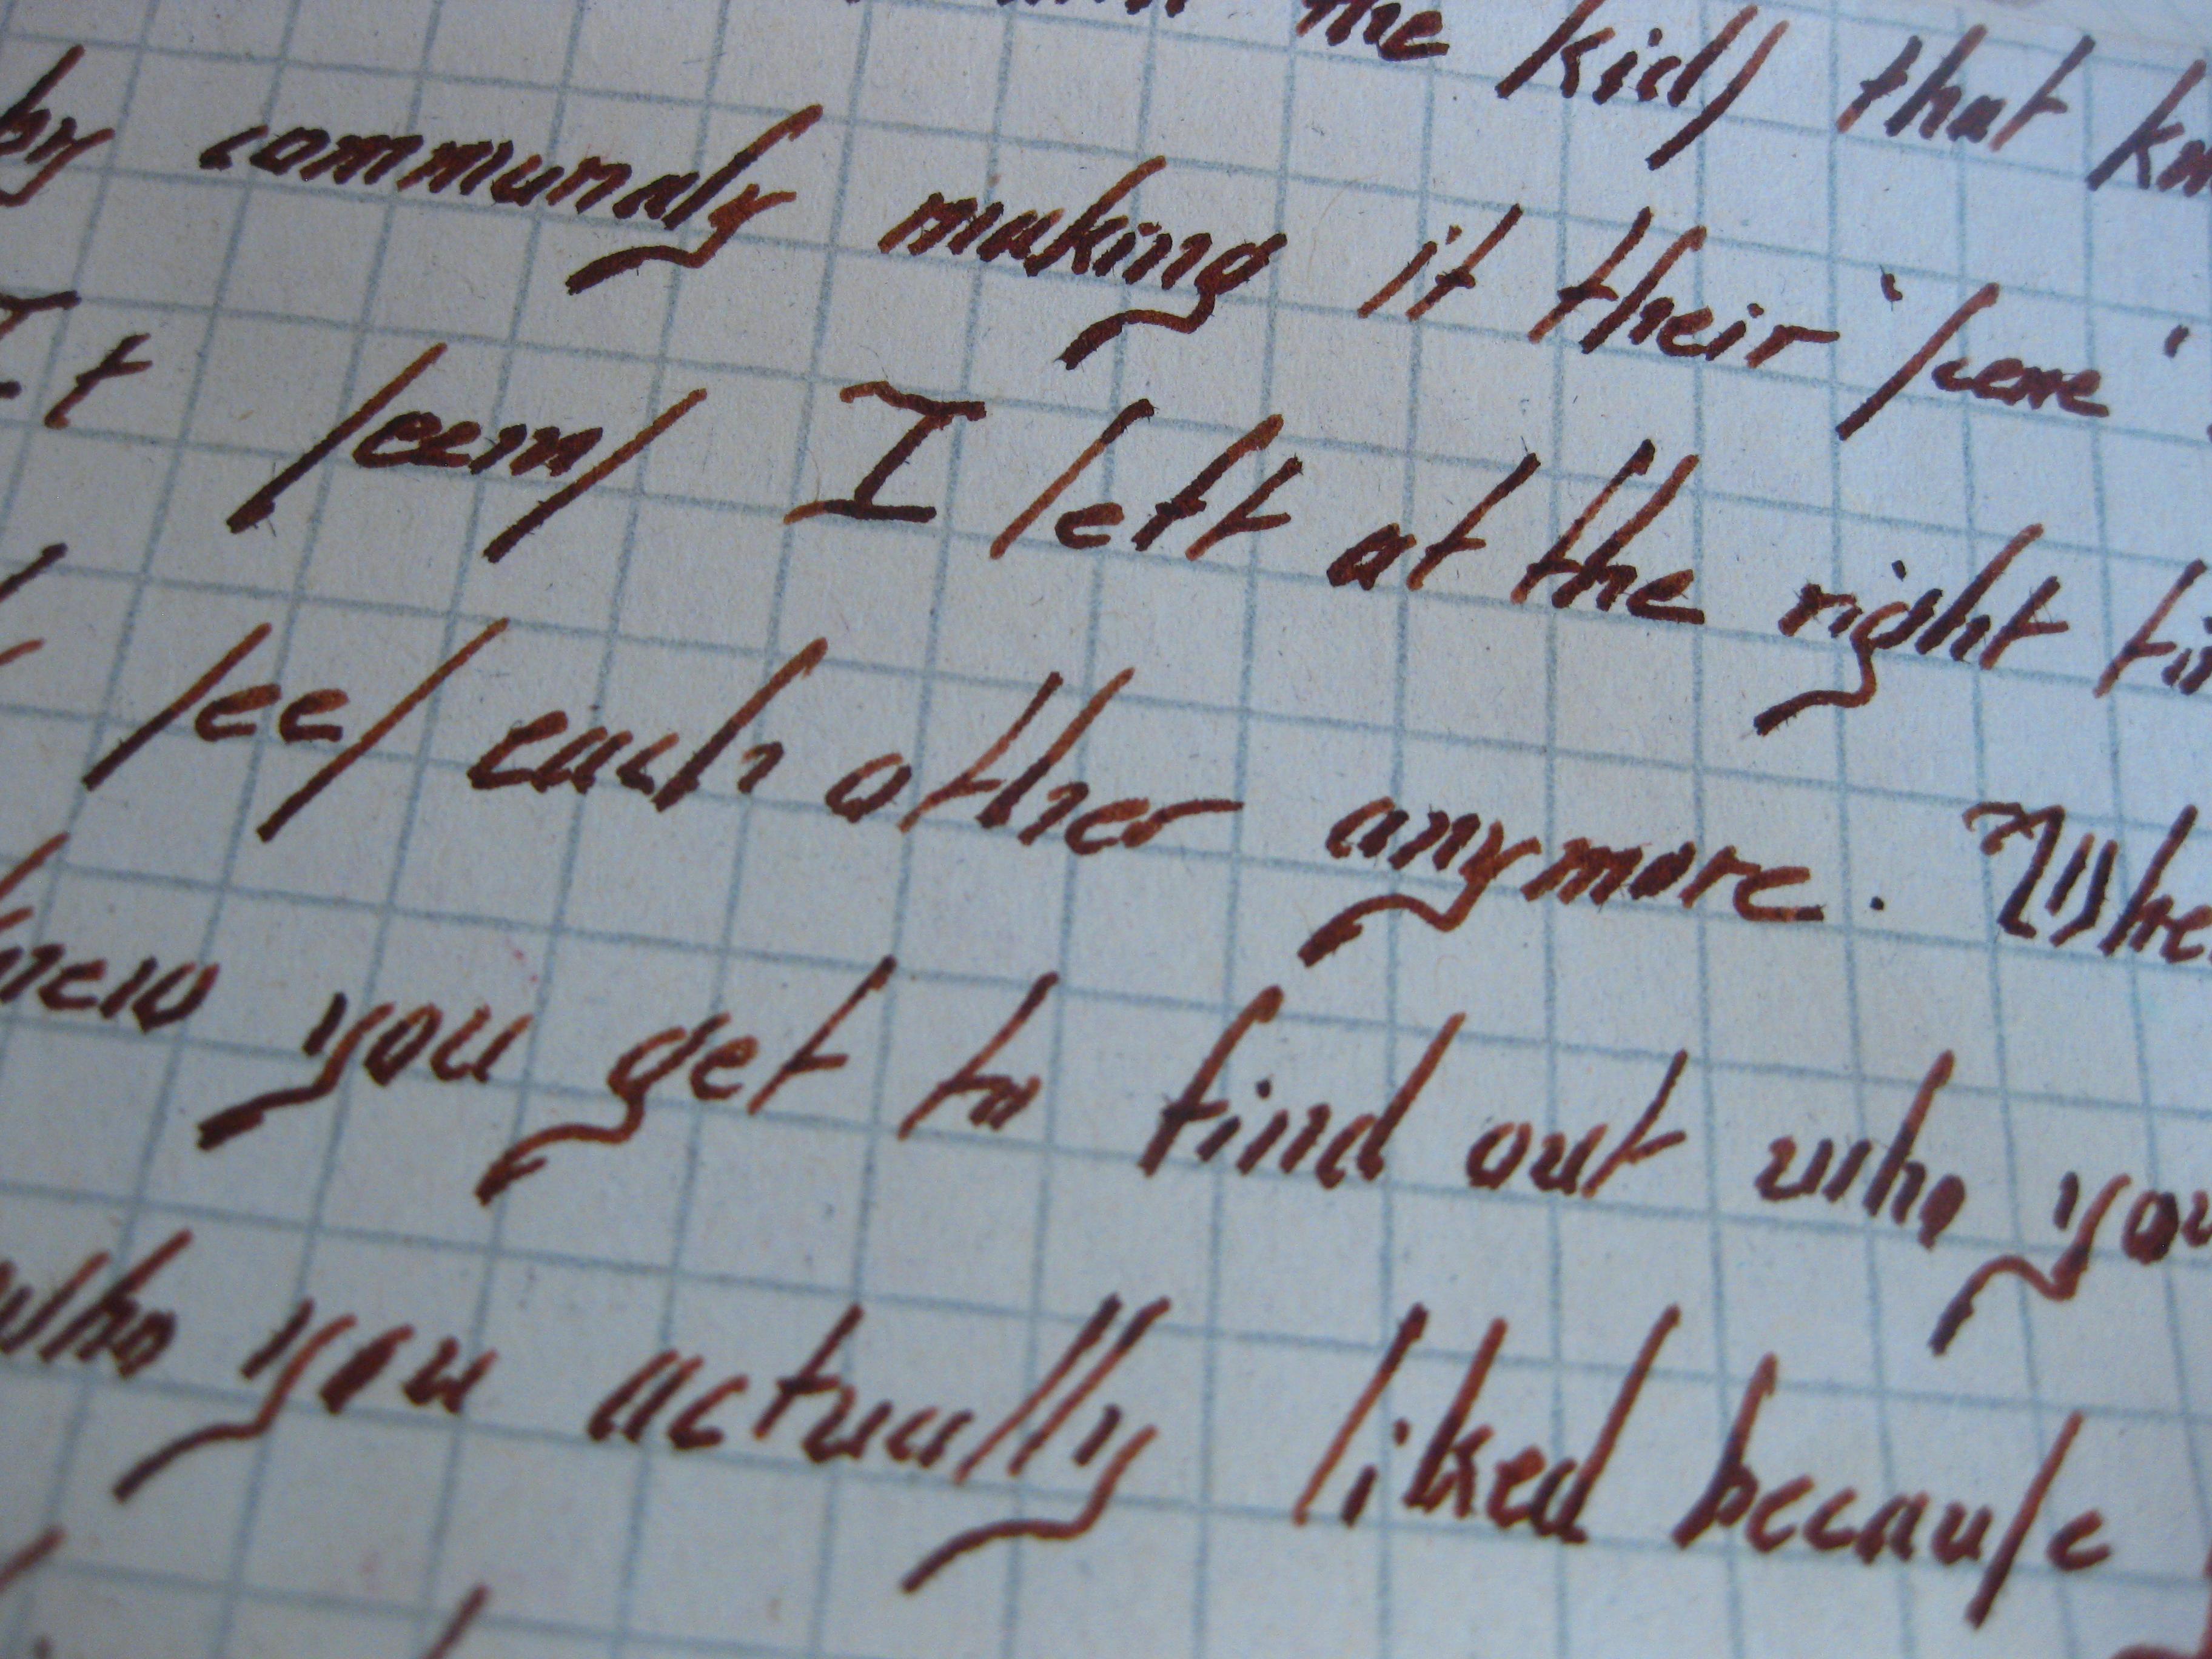 the kids that
by communaly making it their 'scene'
It seems I left at the right
sees each other anymore.
you get to find out who you
who you actually liked because